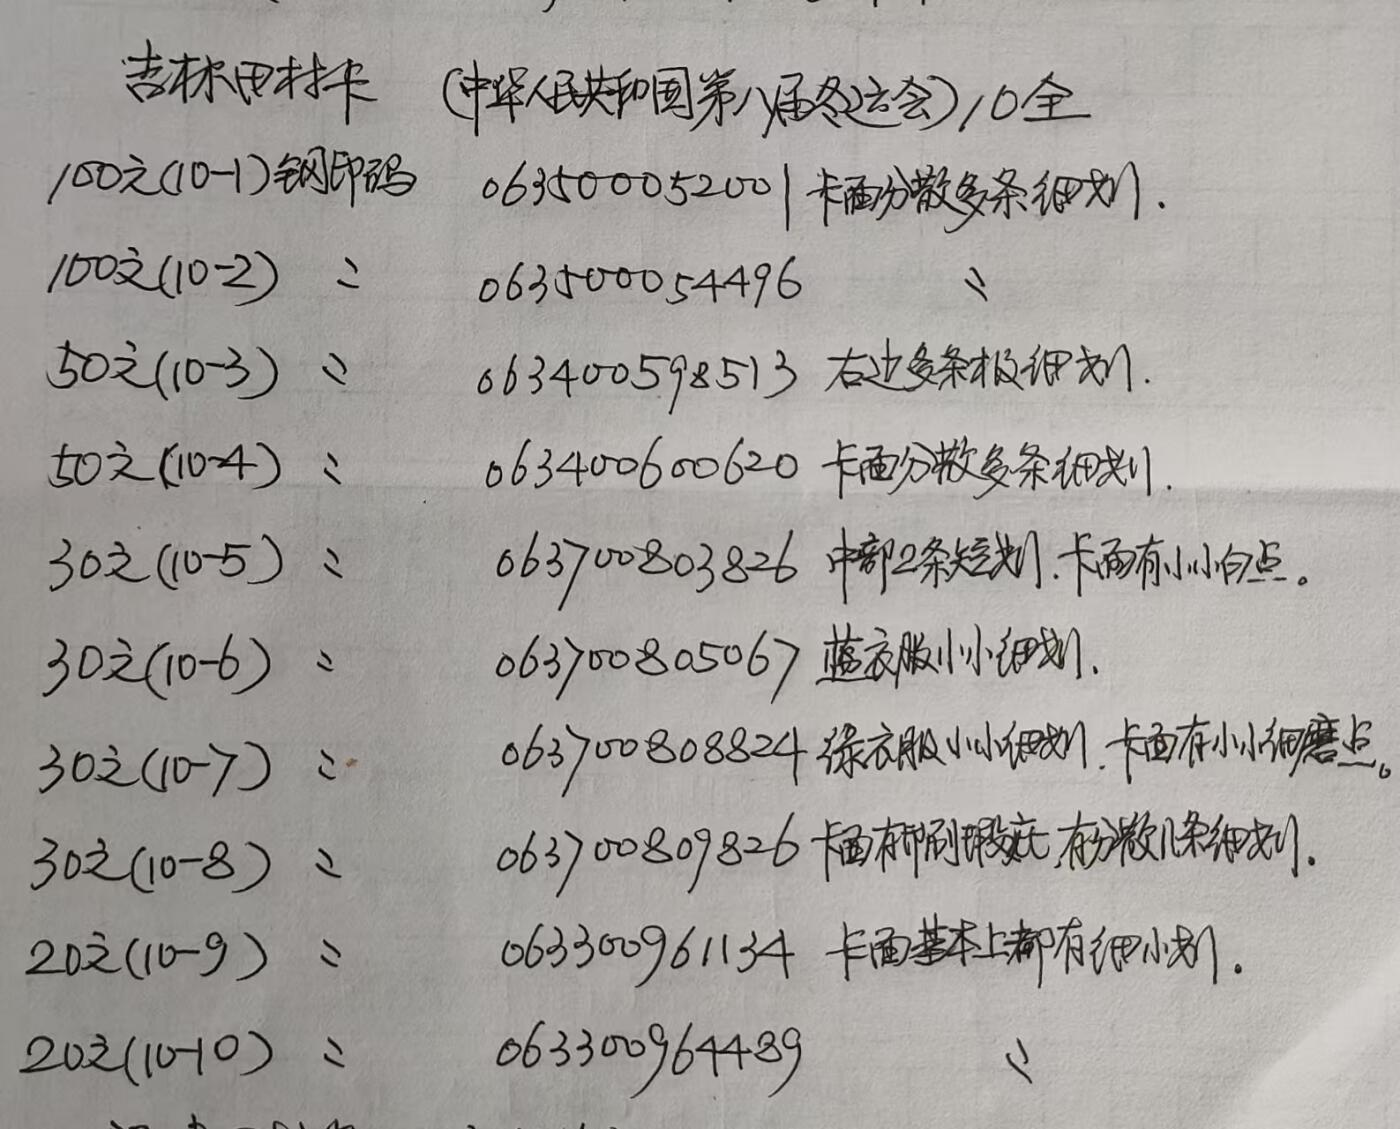 吉林田村卡 (中华人民共和国第八届冬运会)10全
100元(10-1)钢印码 063500052001 卡面分散多条细划.
100元(10-2) 〃 063500054496 〃
50元(10-3) 〃 063400598513 右边多条极细划.
50元(10-4) 〃 063400600620 卡面分散多条细划.
30元(10-5) 〃 063700803826 中部2条短划.卡面有小小白点。
30元(10-6) 〃 063700805067 蓝衣服小小细划.
30元(10-7) 〃 063700808824 绿衣服小小细划.卡面有小小细磨点。
30元(10-8) 〃 063700809826 卡面有印刷瑕疵,有分散几条细划.
20元(10-9) 〃 063300961134 卡面基本上都有细小划.
20元(10-10) 〃 063300964489 〃